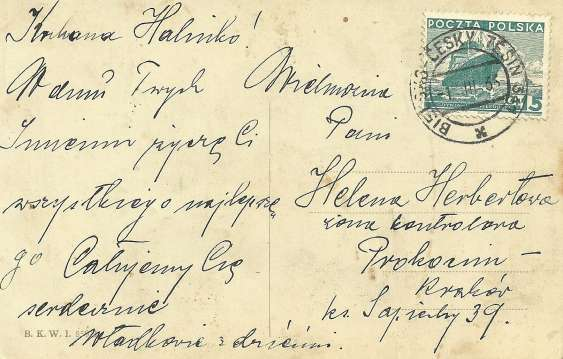 Kochana Halinko!
W dniu Twych
Imienin życzę Ci
wszystkiego najlepsze
go Całujemy Cię
serdecznie
Władkowie z dziećmi.
B. K. W. I.
POCZTA POLSKA
15
BIELSKO - ČESKÝ TĚŠÍN
Wielmożna
Pani
Helena Herbertowa
żona kontrolora
Prokocim -
Kraków
ks. Sapiehy 39.